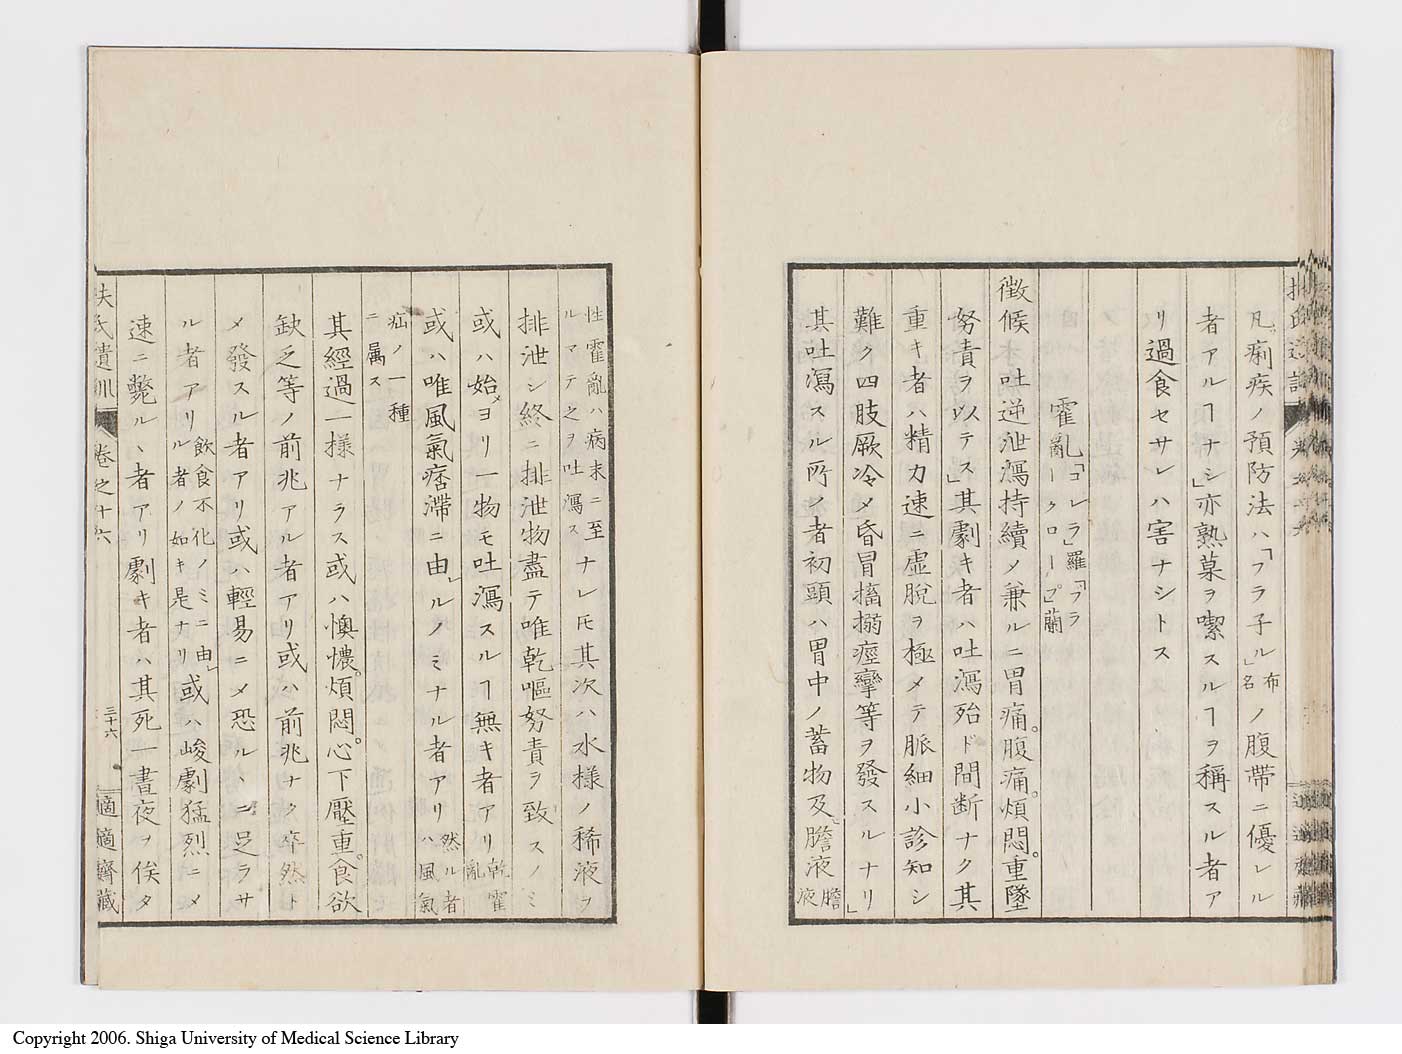 凡ソ痢疾ノ預防法ハ「フラ子ル」布名ノ腹帶ニ優レル
者アルヿナシ」亦熟菓ヲ喫スルヿヲ稱スル者ア
リ過食セサレハ害ナシトス
霍亂「コレラ」羅「ブラークローブ」蘭
徴候吐逆泄瀉持續ノ兼ルニ胃痛。腹痛。煩悶。重墜
努責ヲ以テス」其劇キ者ハ吐瀉殆ド間断ナク其
重キ者ハ精力速ニ虚脱ヲ極メテ脈細小診知シ
難ク四肢厥冷メ昏冒搐搦痙攣等ヲ發スルナリ」
其吐瀉スル所ノ者初頭ハ胃中ノ蓄物及膽液膽液
性霍亂ハ病末ニ至ルマテ之ヲ吐瀉スナレ𪜈其次ハ水様ノ稀液ヲ
排泄シ終ニ排泄物盡テ唯乾嘔努責ヲ致スノミ
或ハ始メヨリ一物モ吐瀉スルヿ無キ者アリ乾霍亂
或ハ唯風氣痞滞ニ由」ルノミナル者アリ然ル者ハ風氣
疝ノ一種ニ属ス
其經過一様ナラス或ハ懊憹。煩悶。心下壓重。食欲
缺乏等ノ前兆アル者アリ或ハ前兆ナク卒然ト
メ發スル者アリ或ハ輕易ニメ恐ルヽニ足ラサ
ル者アリ飲食不化ノミニ由ル者ノ如キ是ナリ」或ハ峻劇猛烈ニメ
速ニ斃ルヽ者アリ劇キ者ハ其死一晝夜ヲ俟タ
扶氏遺訓 卷之十六 三十六 適適齋藏